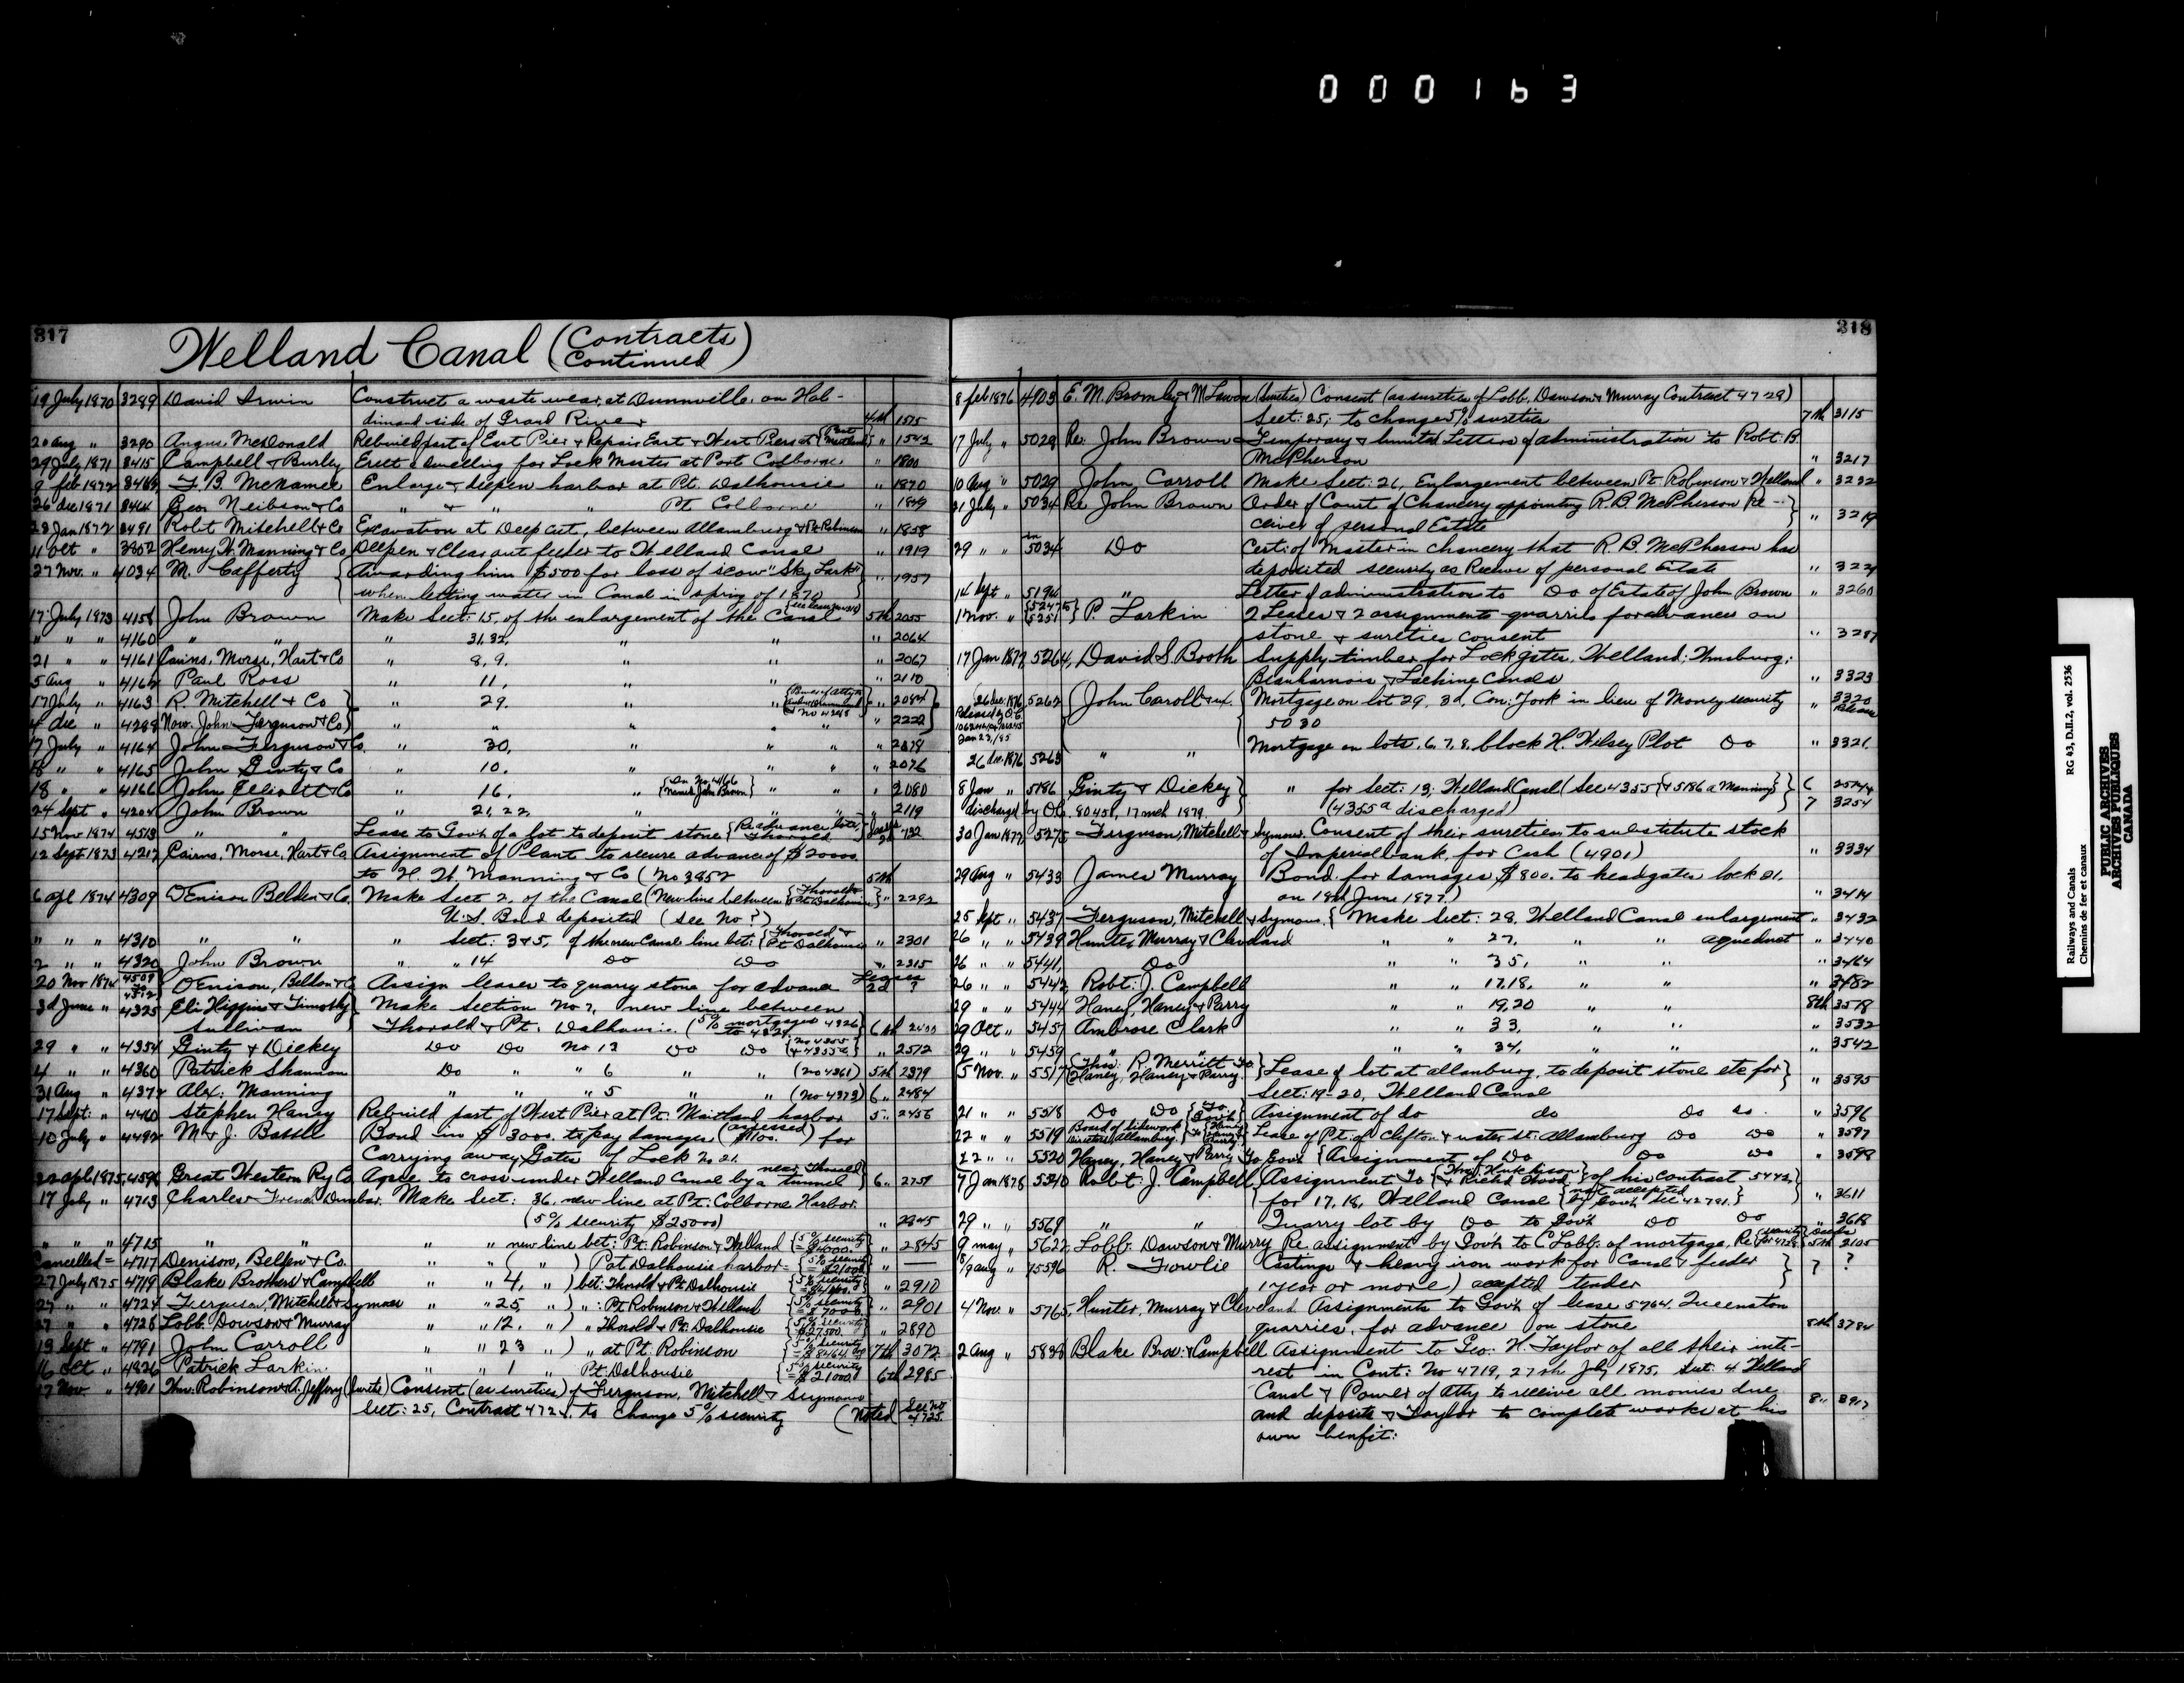 000163
317
Welland Canal (Contracts Continued)
19 July 1870 3289 David Irwin Construct a waste wear, at Dunnville, on Hal-
dimand side of Grand River 4th 1515
20 Aug " 3290 Angus McDonald Rebuild part of East Pier & Repair East & West Piers at {Port Maitland} " 1542
29 July 1871 3415 Campbell & Burley Erect a dwelling for Lock Master at Port Colborne " 1800
9 feb 1872 3463 F. B. McNamee Enlarge & deepen harbor at Pt. Dalhousie " 1870
26 dec 1871 3464 Geo Neibson & Co " & " " Pt Colborne " 1849
23 Jan 1872 3491 Robt Mitchell & Co Excavation at Deep Cut, between Allanburg & Pt. Robinson " 1858
11 Oct " 3802 Henry W. Manning & Co Deepen & Clear out feeder to Welland Canal " 1919
27 Nov. " 4034 M. Cafferty {Awarding him $500 for loss of scow "Sky Lark"
when letting water in Canal in spring of 1870 } " 1957
17 July 1873 4158 John Brown Make Sect: 15, of the enlargement of the Canal 5th 2055
" " " 4160 " " " 31, 32, " " " 2064
21 " " 4161 Cairns, Morse, Hart & Co " 8, 9. " " " 2067
5 Aug " 4162 Paul Ross " 11, " " " 2110
17 July " 4163 R. Mitchell & Co } " 29. " " " 2084
4 dec " 4288 Now. John Ferguson & Co) " " " " " 2222
17 July " 4164 John Ferguson & Co. " 30, " " " " 2078
18 " " 4165 John Ginty & Co " 10. " " " " 2076
18 " " 4166 John Elliott & Co " 16, {In No. 4166 named John Brown} " " " 2080
24 Sept " 4204 John Brown " 21, 22, " " " " 2119
15 Nov 1874 4513 " " Lease to Govt. of a lot to deposit stone {Re advance lots, Thorold} Leases 2d 732
12 Sept 1873 4217 Cairns, Morse, Hart & Co Assignment of Plant to secure advance of $20000
to H. W. Manning & Co (No 3852 5th
6 apl 1874 4309 Denison Belden & Co. Make Sect 2, of the Canal (New line between {Thorold & Pt. Dalhousie} " 2292
U.S. Bond deposited (see No ?)
" " " 4310 " " " Sect: 3 & 5, of the new Canal line bet: {Thorold & Pt Dalhousie " 2301
2 " " 4320 John Brown " " 14 Do Do " 2315
20 Nov 1874 4509 to 4512 Denison, Belden & Co Assign leases to quarry stone for advance Leases 2d ?
3d June " 4325 Eli Higgins & Timothy } Make Section No 7, new line between
Sullivan Thorold & Pt. Dalhousie (5% mortgages 4326 to 4329) 6th 2400
29 " " 4354 Ginty & Dickey Do Do No 13 Do Do {No 4355 & 4355a} " 2512
4 " " 4360 Patrick Shannon Do " " 6 " " (No 4361) 5th 2379
31 Aug " 4372 Alex: Manning " " " 5 " " (No 4373) 6 " 2484
17 Sept: " 4460 Stephen Haney Rebuild part of West Pier at Pt. Maitland harbor 5 " 2456
10 July " 4492 M & J. Battle Bond in $3000. to pay damages (assessed $1100.) for
Carrying away Gates of Lock No 21.
22 apl 1875 4596 Great Western Ry Co Agree to cross under Welland Canal by a tunnel near Thorold } 6 " 2751
17 July " 4713 Charles French Dunbar. Make Sect: 36, new line at Pt. Colborne Harbor.
(5% security $25000) " 2845
" " " 4715 " " " " new line bet: Pt. Robinson & Welland {5% security = $4000.} " 2845
Cancelled = 4717 Denison, Belden & Co. " " ( " ) Pt Dalhousie harbor = {5% security = $21000} " —
27 July 1875 4719 Blake Brothers & Campbell " " 4, " ) bet: Thorold & Pt Dalhousie {5% security " 2910
27 " " 4724 Ferguson, Mitchell & Symmes " " 25, " ) " : Pt Robinson & Welland {5% security = $9000.} " 2901
27 " " 4728 Lobb. Dowson & Murray " " 12. " ) " Thorold & Pt. Dalhousie {5% security = $27500.} " 2890
13 Sept " 4791 John Carroll " " 23 " ) " at Pt. Robinson {5% security 7th 3072
16 Oct " 4826 Patrick Larkin. " " 1 " Pt. Dalhousie {5% security = $21000.} 6th 2985
17 Nov. " 4901 Wm: Robinson & A. Jeffery (sureties) Consent (as sureties) of Ferguson, Mitchell & Symmes
Sect: 25, Contract 4724, to change 5% security (Noted See No 4725
318
8 feb 1876 4903 E. M. Bromley & (sureties) Consent (as sureties of Lobb, Dawson & Murray Contract 4728)
Sect. 25; to change 5% sureties 7th 3115
17 July " 5028 Re. John Brown Temporary & limited Letters of administration to Robt. B.
McPherson " 3217
10 Aug " 5029 John Carroll Make Sect: 26, Enlargement between Pt. Robinson & Welland " 3232
21 July " 5034 Re John Brown Order of Court of Chancery appointing R. B. McPherson Re-
ceiver of personal Estate } " 3219
29 " " in 5034 Do Cert: of Master in chancery that R. B. McPherson has
deposited security as Receiver of personal Estate " 3221
14 Sept " 5194 " Letter of administration to Do of Estate of John Brown " 3260
1 Nov. " {5247 to 5251} P. Larkin 2 Leases & 2 assignments quarries for advances on
stone & sureties consent " 3287
17 Jan 1877 5264, David S. Booth Supply timber for Lock gates, Welland; Wmsburg;
Beauharnois & Lachine Canals " 3323
26 dec. 1876 5262 (John Caroll & ux. {Mortgage on lot 29, 3d, Con: York in lieu of Money security " 3320 Release
Released by O.C. Jan 23, /85 5030
26 dec. 1876 5263 " " Mortgage on lots, 6, 7, 8, block H. Hilsey Plot Do " 3321
8 Jan " 5186 Ginty & Dickey } " for Sect: 13; Welland Canal (See 4355 {& 5186 a Manning} } 6
discharged by O.C. 80451, 17 mch 1879. (4355a discharged) 7 3254
30 Jan 1877 5275 Ferguson, Mitchell & Symmes. Consent of their sureties to substitute stock
of Imperial bank, for Cash (4901) " 3334
29 Aug " 5433 James Murray Bond for damages, $800. to headgates lock 21.
on 18th June 1877.) " 3414
25 Sept " 5437 Ferguson, Mitchell & Symmes. { Make Sect: 28, Welland Canal enlargement " 3432
26 " " 5439 Hunter Murray & Cleveland " " 27, " " aqueduct " 3440
26 " " 5441, Do " " 35, " " " 3464
26 " " 5442 Robt: J. Campbell " " 17.18, " " " 3482
29 " " 5444 Haney, Haney & Parry " " 19,20 " " 8th 3518
29 Oct " 5457 Ambrose Clark " " 33, " " " 3532
29 " " 5459 " " " 34, " " " 3542
5 Nov. " 5517 {Thos: R. Merritt To Haney, Haney & Parry. } Lease of lot at allanburg, to deposit stone etc for }
Sect: 19-20, Welland Canal " 3595
21 " " 5518 Do Do {To Gov't} Assignment of do do Do do. " 3596
22 " " 5519 Board of directors Allanburg. To {Haney Haney & Parry} Lease of Pt. of Clifton & water St: Allanburg Do Do " 3597
22 " " 5520 Haney, Haney & Parry To Govt {Assignment of Do Do Do " 3598
7 Jan 1878 5540 Robt: J. Campbell Assignment To {Thos: Hutchison & Richd Wood} of his contract 5442,
for 17,18, Welland Canal {not accepted by Govt. See 42791.} " 3611
29 " " 5569 " " Quarry lot by Do to Govt Do Do " 3618
9 may " 5622 Lobb. Dowson & Murry Re assignment by Govt. to C Lobb. of mortgage, Re security for 4728. 5th 2105
19 aug " 5596 R. Fowlie Castings & heavy iron work for Canal & feeder
1 year or more) accepted tender } 7 ?
4 Nov. " 5765, Hunter, Murray & Cleveland Assignments to Govt. of lease 5764. Queenston
quarries, for advance on stone 8th 3784
2 aug " 5838 Blake Bros: & Campbell Assignment to Geo: H. Taylor of all their inte-
rest in Cont: No 4719, 27th July 1875, Sect: 4 Welland
Canal & Power of Atty to receive all monies due
and deposits & Taylor to complete works at his 8 " 3917
own benfit:
Railways and Canals RG 43, D.II.2, vol. 2536
Chemins de fer et canaux
PUBLIC ARCHIVES
ARCHIVES PUBLIQUES
CANADA